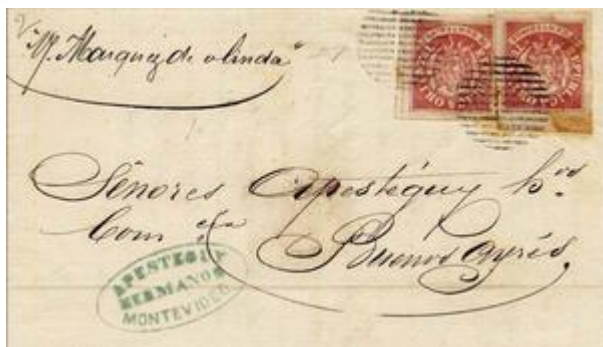 "Marquez de olinda"
Señores Apestéguy h.os
Com
Buenos Ayres.
APESTEGUY
HERMANOS
MONTEVIDEO